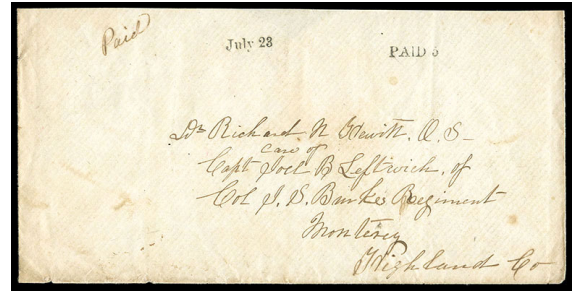 Paid
July 23
PAID 5
Dr Richard N Hewitt. Q. S-
care of
Capt Joel B Leftwich. of
Col J. S. Burks Regiment
Monterey
Highland Co